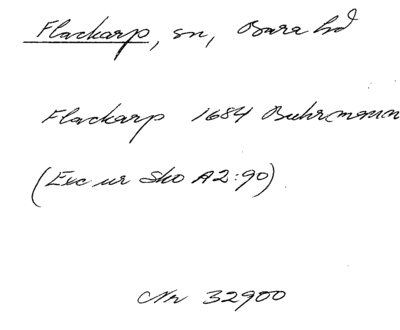 Flackarp, sn, Bara hd
Flackarp 1684 Buhrmann
(Exc ur Sko A2:90)
Nr 32900